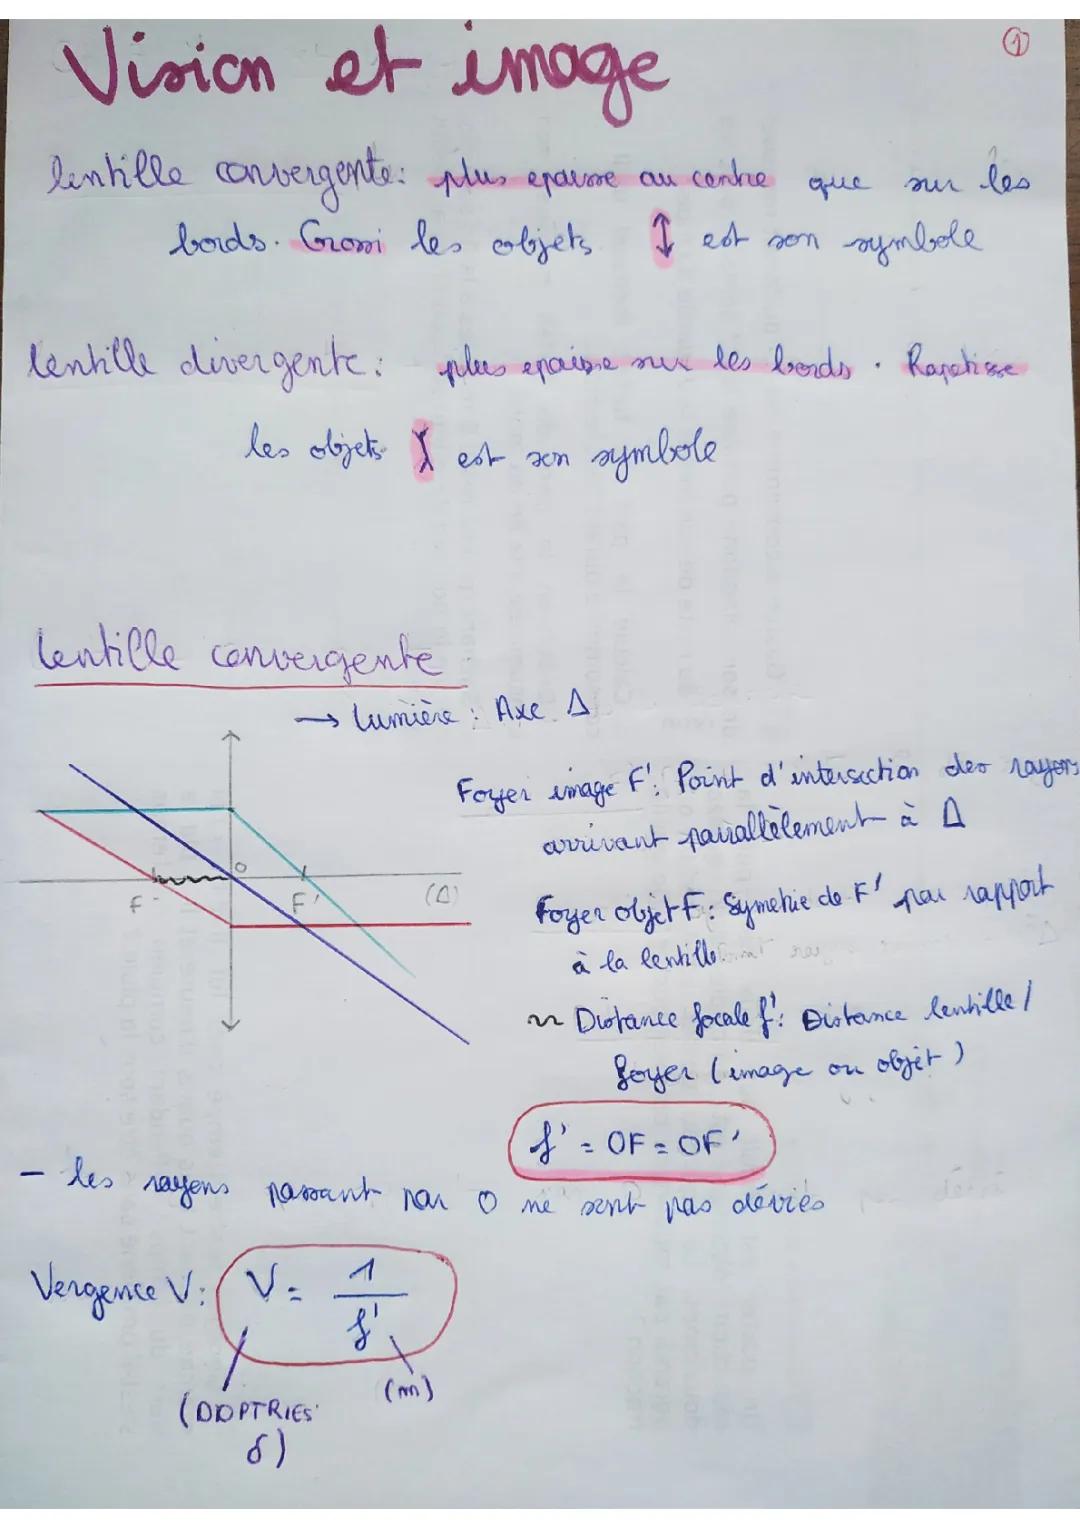 Vision et image
1
lentille convergente: plus epaisse au centre que sur les
bords. Grossi les objets ↕ est son symbole
lentille divergente: plus epaisse sur les bords. Rapetisse
les objets est son symbole
lentille convergente
→ lumière : Axe Δ
Foyer image F': Point d'intersection des rayons
arrivant parallèlement à Δ
O
F
F'
(Δ)
Foyer objet F: Symetrie de F' par rapport
à la lentille
~ Distance focale f': Distance lentille /
foyer (image ou objet)
f' = OF = OF'
- les rayons passant par O ne sont pas déviés
Vergence V: V = 1
f'
(m)
(DIOPTRIES
δ)